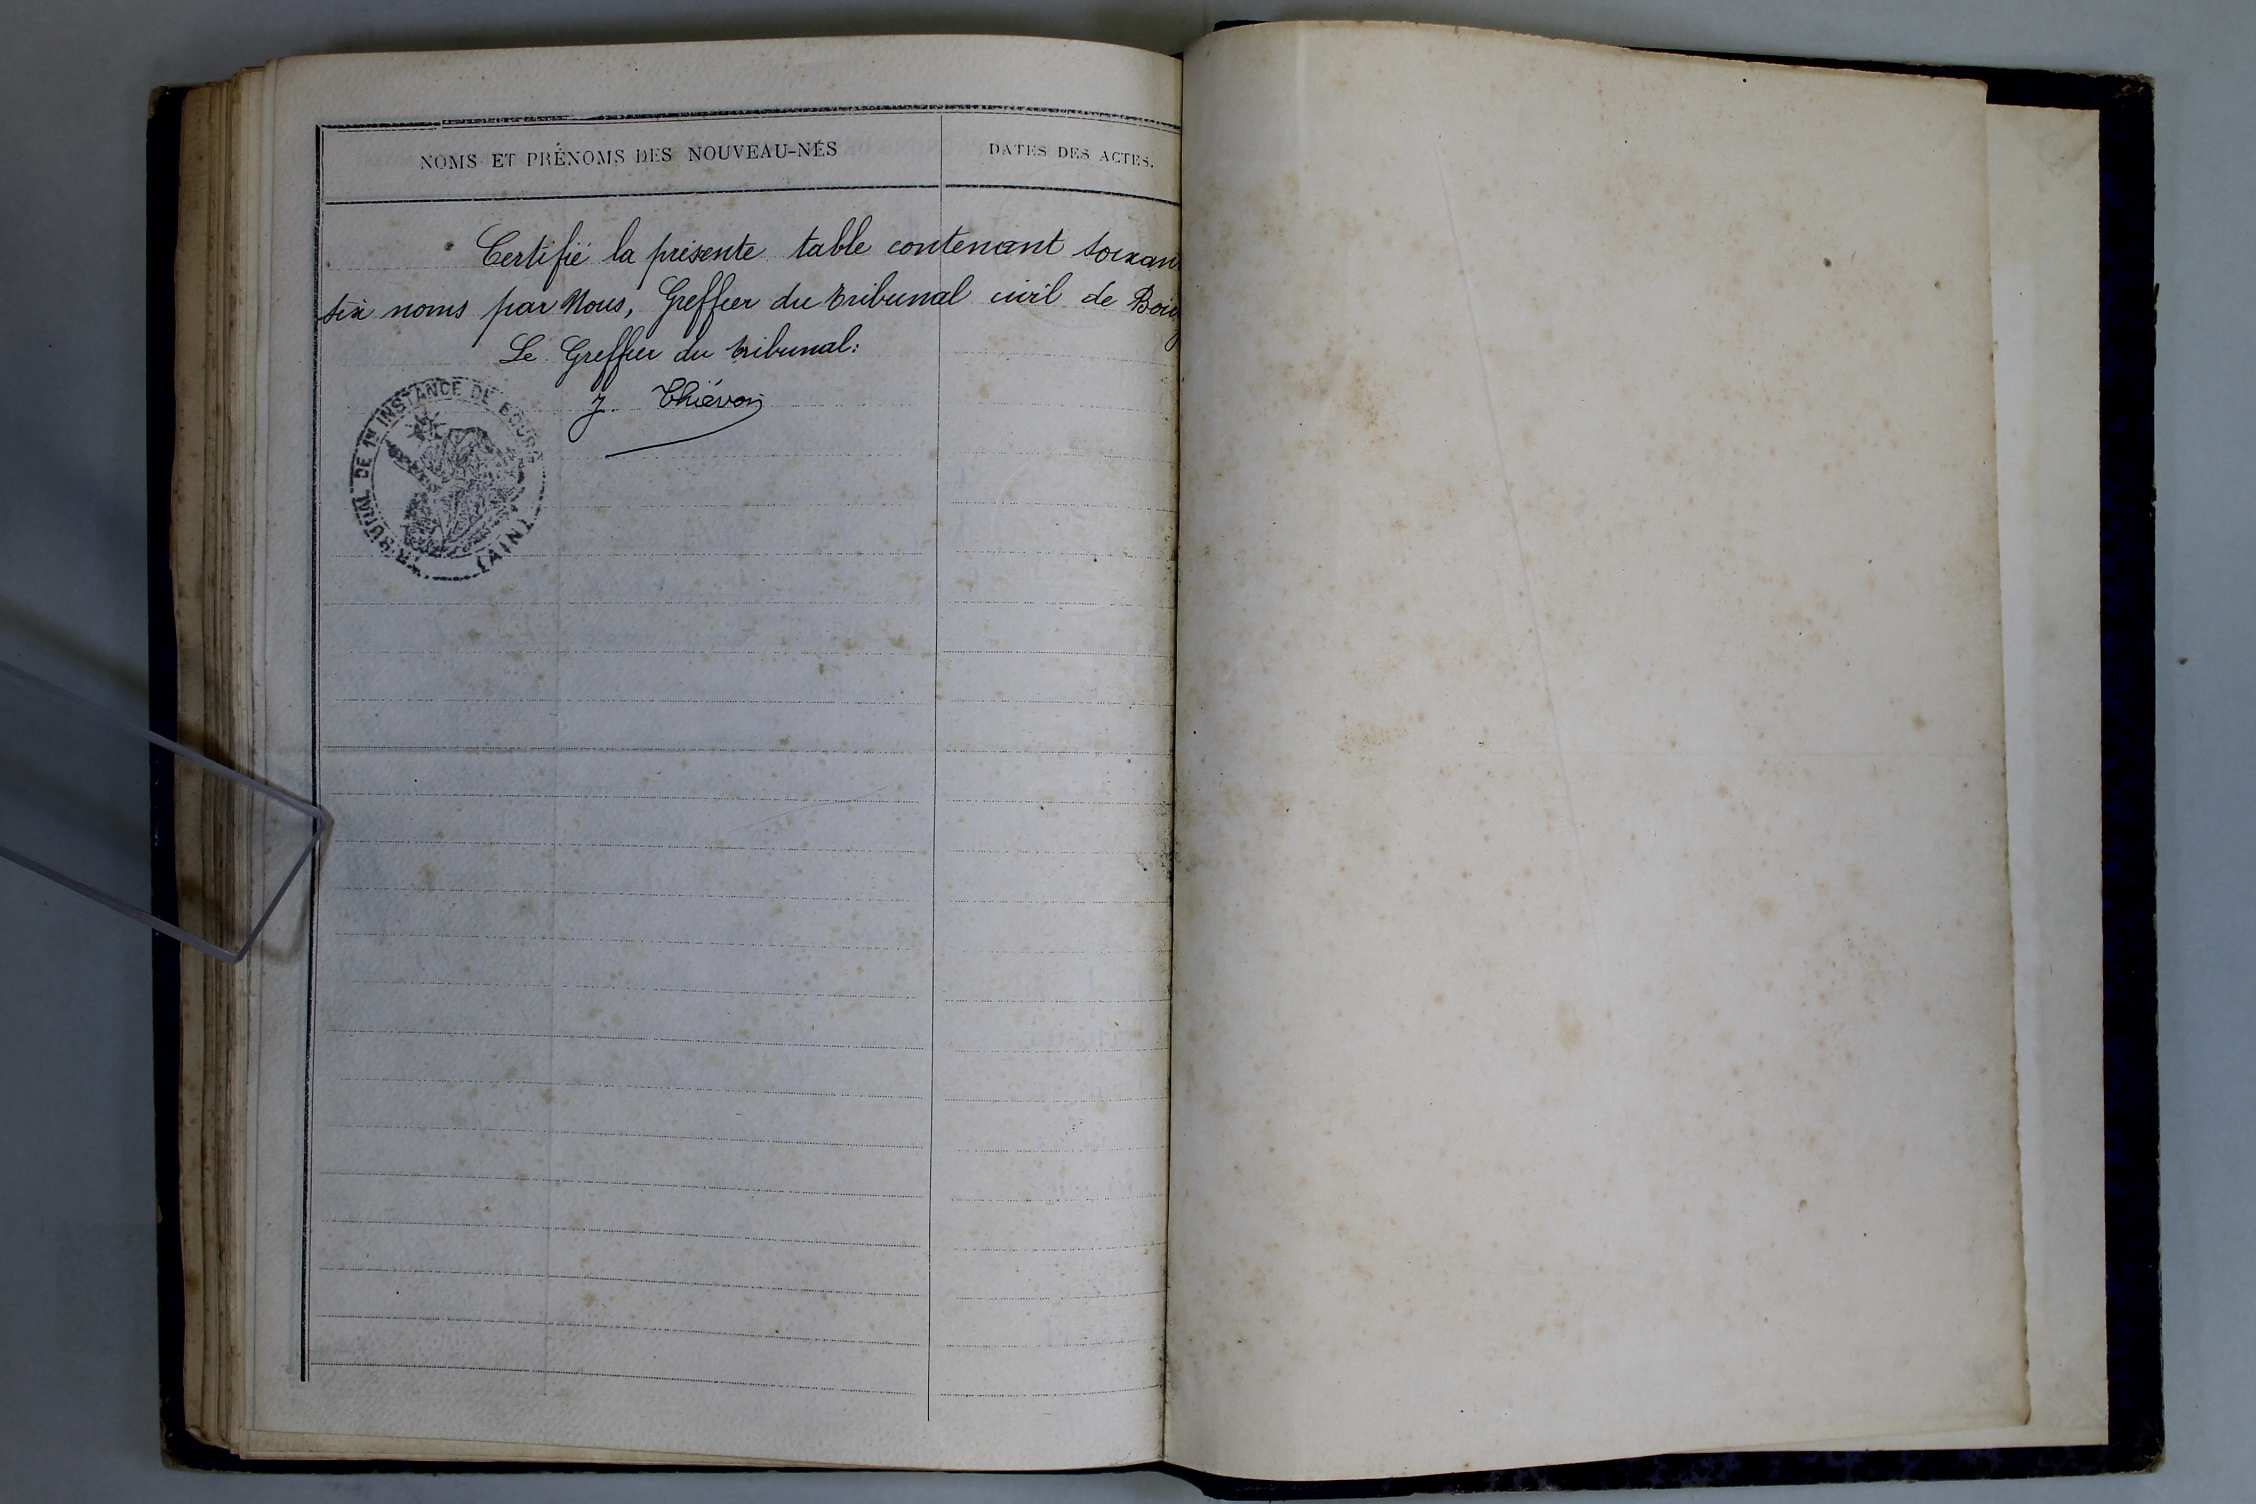 NOMS ET PRÉNOMS DES NOUVEAU-NÉS
DATES DES ACTES.
Certifié la présente table contenant soixan
six noms par Nous, Greffier du tribunal civil de Bourg
Le Greffier du tribunal:
J. Thiévon
TRIBUNAL DE 1re INSTANCE DE BOURG
(AIN)